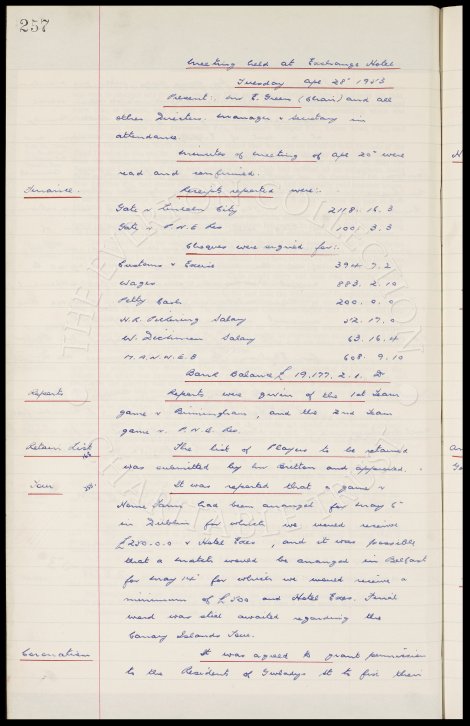 257
Meeting held at Exchange Hotel
Tuesday Apl. 28th 1953
Present:- Mr E. Green (Chair) and all
other Directors. Manager & Secretary in
attendance.
Minutes of meeting of Apl 20th were
read and confirmed.
Finance.
Receipts reported were:-
Gate v Lincoln City 2118. 16. 3
Gate v P.N.E Res 100. 3. 3
Cheques were signed for:-
Customs & Excise 394. 7. 2
Wages 883. 2. 10
Petty Cash 200. 0. 0
H.R. Pickering Salary 52. 17. 0
W. Dickinson Salary 63. 16. 4
M.A.N.W.E.B 608. 9. 10
Bank Balance £ 19,177. 2. 1. Dr
Reports
Reports were given of the 1st Team
game v Birmingham, and the 2nd Team
game v. P.N.E. Res.
Retain List
The list of Players to be retained
was submitted by Mr Britton and approved.
Tour
It was reported that a game v
Home Farm had been arranged for May 6th
in Dublin for which we would receive
£250.0.0 & Hotel Exes, and it was possible
that a match would be arranged in Belfast
for May 14th for which we would receive a
minimum of £500 and Hotel Exes. Final
word was still awaited regarding the
Canary Islands Tour.
Coronation
It was agreed to grant permission
to the Residents of Gwladys St to fix their
THE EVERTON COLLECTION
CHARITABLE TRUST